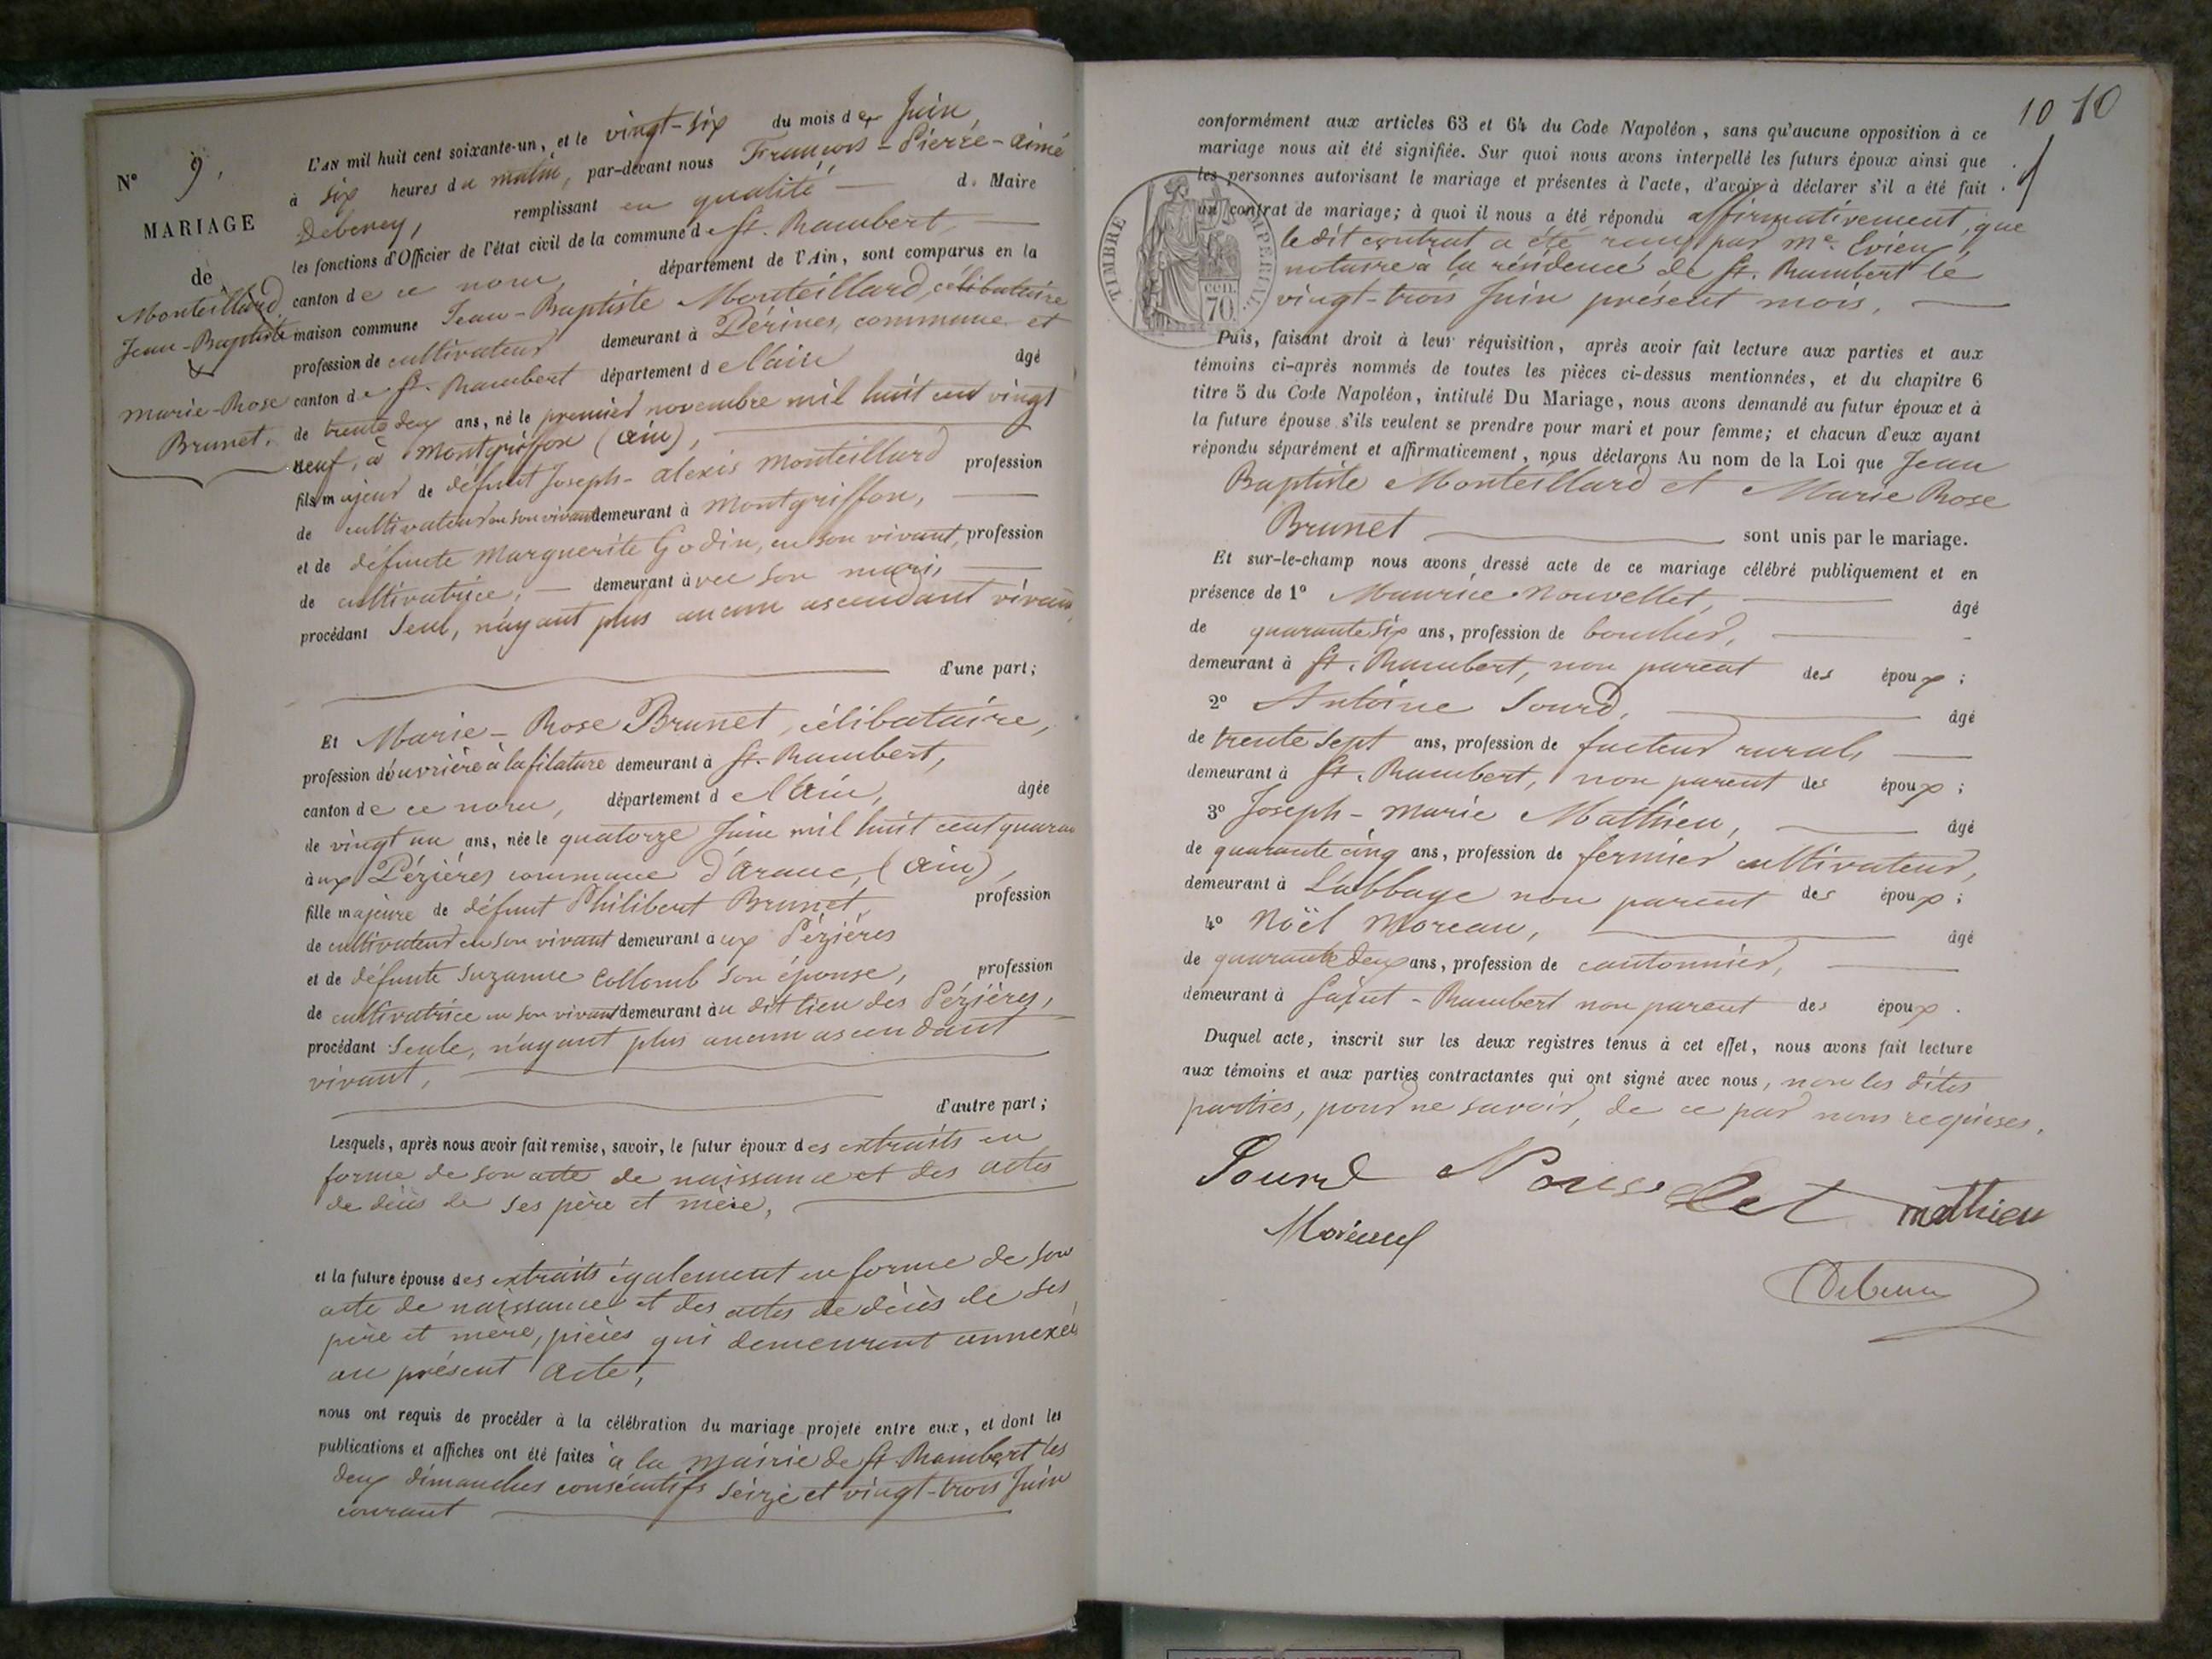 N° 9.
MARIAGE
de
Monteillard,
Jean-Baptiste
&
Marie-Rose
Brunet.
L'AN mil huit cent soixante-un, et le vingt-six du mois de Juin,
à six heures du matin, par-devant nous François-Pierre-Aimé
Debeney, remplissant en qualité de Maire
les fonctions d'Officier de l'état civil de la commune de St. Rambert,
canton de ce nom, département de l'Ain, sont comparus en la
maison commune Jean-Baptiste Monteillard, célibataire
profession de cultivateur demeurant à Pérines, commune et
canton de St. Rambert département de l'ain âgé
de trente deux ans, né le premier novembre mil huit cent vingt
neuf, à Montgriffon (ain),
fils majeur de défunt Joseph-alexis Monteillard profession
de cultivateur en son vivant demeurant à Montgriffon,
et de défunte Marguerite Godin, en son vivant, profession
de cultivatrice, demeurant avec son mari,
procédant seul, n'ayant plus aucun ascendant vivant,
d'une part;
Et Marie-Rose Brunet, célibataire,
profession d'ouvrière à la filature demeurant à St. Rambert,
canton de ce nom, département de l'Ain, âgée
de vingt un ans, née le quatorze Juin mil huit cent quaran
aux Pézières commune d'aranc, (ain),
fille majeure de défunt Philibert Brunet, profession
de cultivateur en son vivant demeurant aux Pézières
et de défunte Suzanne Collomb son épouse, profession
de cultivatrice en son vivant demeurant au dit lieu des Pézières,
procédant seule, n'ayant plus aucun ascendant
vivant,
d'autre part;
Lesquels, après nous avoir fait remise, savoir, le futur époux des extraits en
forme de son acte de naissance et des actes
de décès de ses père et mère,
et la future épouse des extraits également en forme de son
acte de naissance et des actes de décès de ses
père et mère, pièces qui demeurent annexées
au présent acte,
nous ont requis de procéder à la célébration du mariage projeté entre eux, et dont les
publications et affiches ont été faites à la mairie de St. Rambert les
deux dimanches consécutifs seize et vingt-trois Juin
courant
10 10
conformément aux articles 63 et 64 du Code Napoléon, sans qu'aucune opposition à ce
mariage nous ait été signifiée. Sur quoi nous avons interpellé les futurs époux ainsi que
les personnes autorisant le mariage et présentes à l'acte, d'avoir à déclarer s'il a été fait
un contrat de mariage; à quoi il nous a été répondu affirmativement, que
le dit contrat a été reçu par Me.
notaire à la résidence de St. Rambert le
vingt-trois Juin présent mois.
TIMBRE IMPERIAL
cen.
70.
Puis, faisant droit à leur réquisition, après avoir fait lecture aux parties et aux
témoins ci-après nommés de toutes les pièces ci-dessus mentionnées, et du chapitre 6
titre 5 du Code Napoléon, intitulé Du Mariage, nous avons demandé au futur époux et à
la future épouse s'ils veulent se prendre pour mari et pour femme; et chacun d'eux ayant
répondu séparément et affirmativement, nous déclarons Au nom de la Loi que Jean
Baptiste Monteillard et Marie Rose
Brunet sont unis par le mariage.
Et sur-le-champ nous avons dressé acte de ce mariage célébré publiquement et en
présence de 1° Maurice Nouvellet, âgé
de quarante six ans, profession de boucher,
demeurant à St. Rambert, non parent des époux;
2° Antoine Sourd, âgé
de trente sept ans, profession de facteur rural,
demeurant à St. Rambert, non parent des époux;
3° Joseph-Marie Mathieu, âgé
de quarante cinq ans, profession de fermier cultivateur,
demeurant à L'abbaye non parent des époux;
4° Noël Moreau, âgé
de quarante deux ans, profession de cantonnier,
demeurant à Saint-Rambert non parent des époux.
Duquel acte, inscrit sur les deux registres tenus à cet effet, nous avons fait lecture
aux témoins et aux parties contractantes qui ont signé avec nous, non les dites
parties, pour ne savoir, de ce par nous requises.
Sourd Nouvellet mathieu